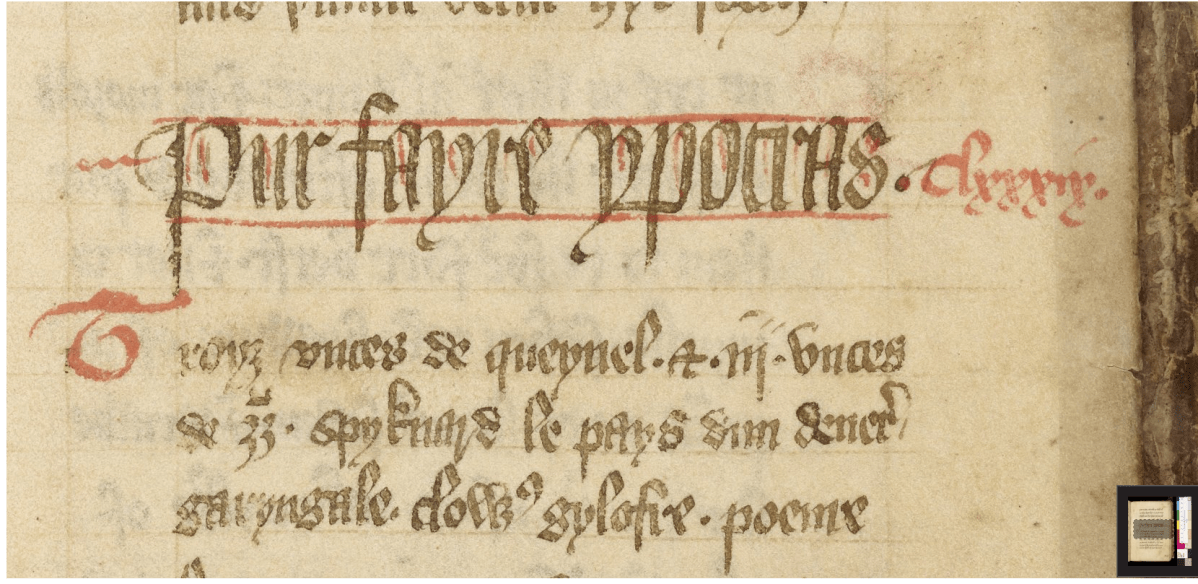 Pur fayre ypocras. clxxxix.
Troyz vnces de queynel. & .iij. vnces
de zz. spyknard le pays dun dener
garyngale. clows gylofre. poeure